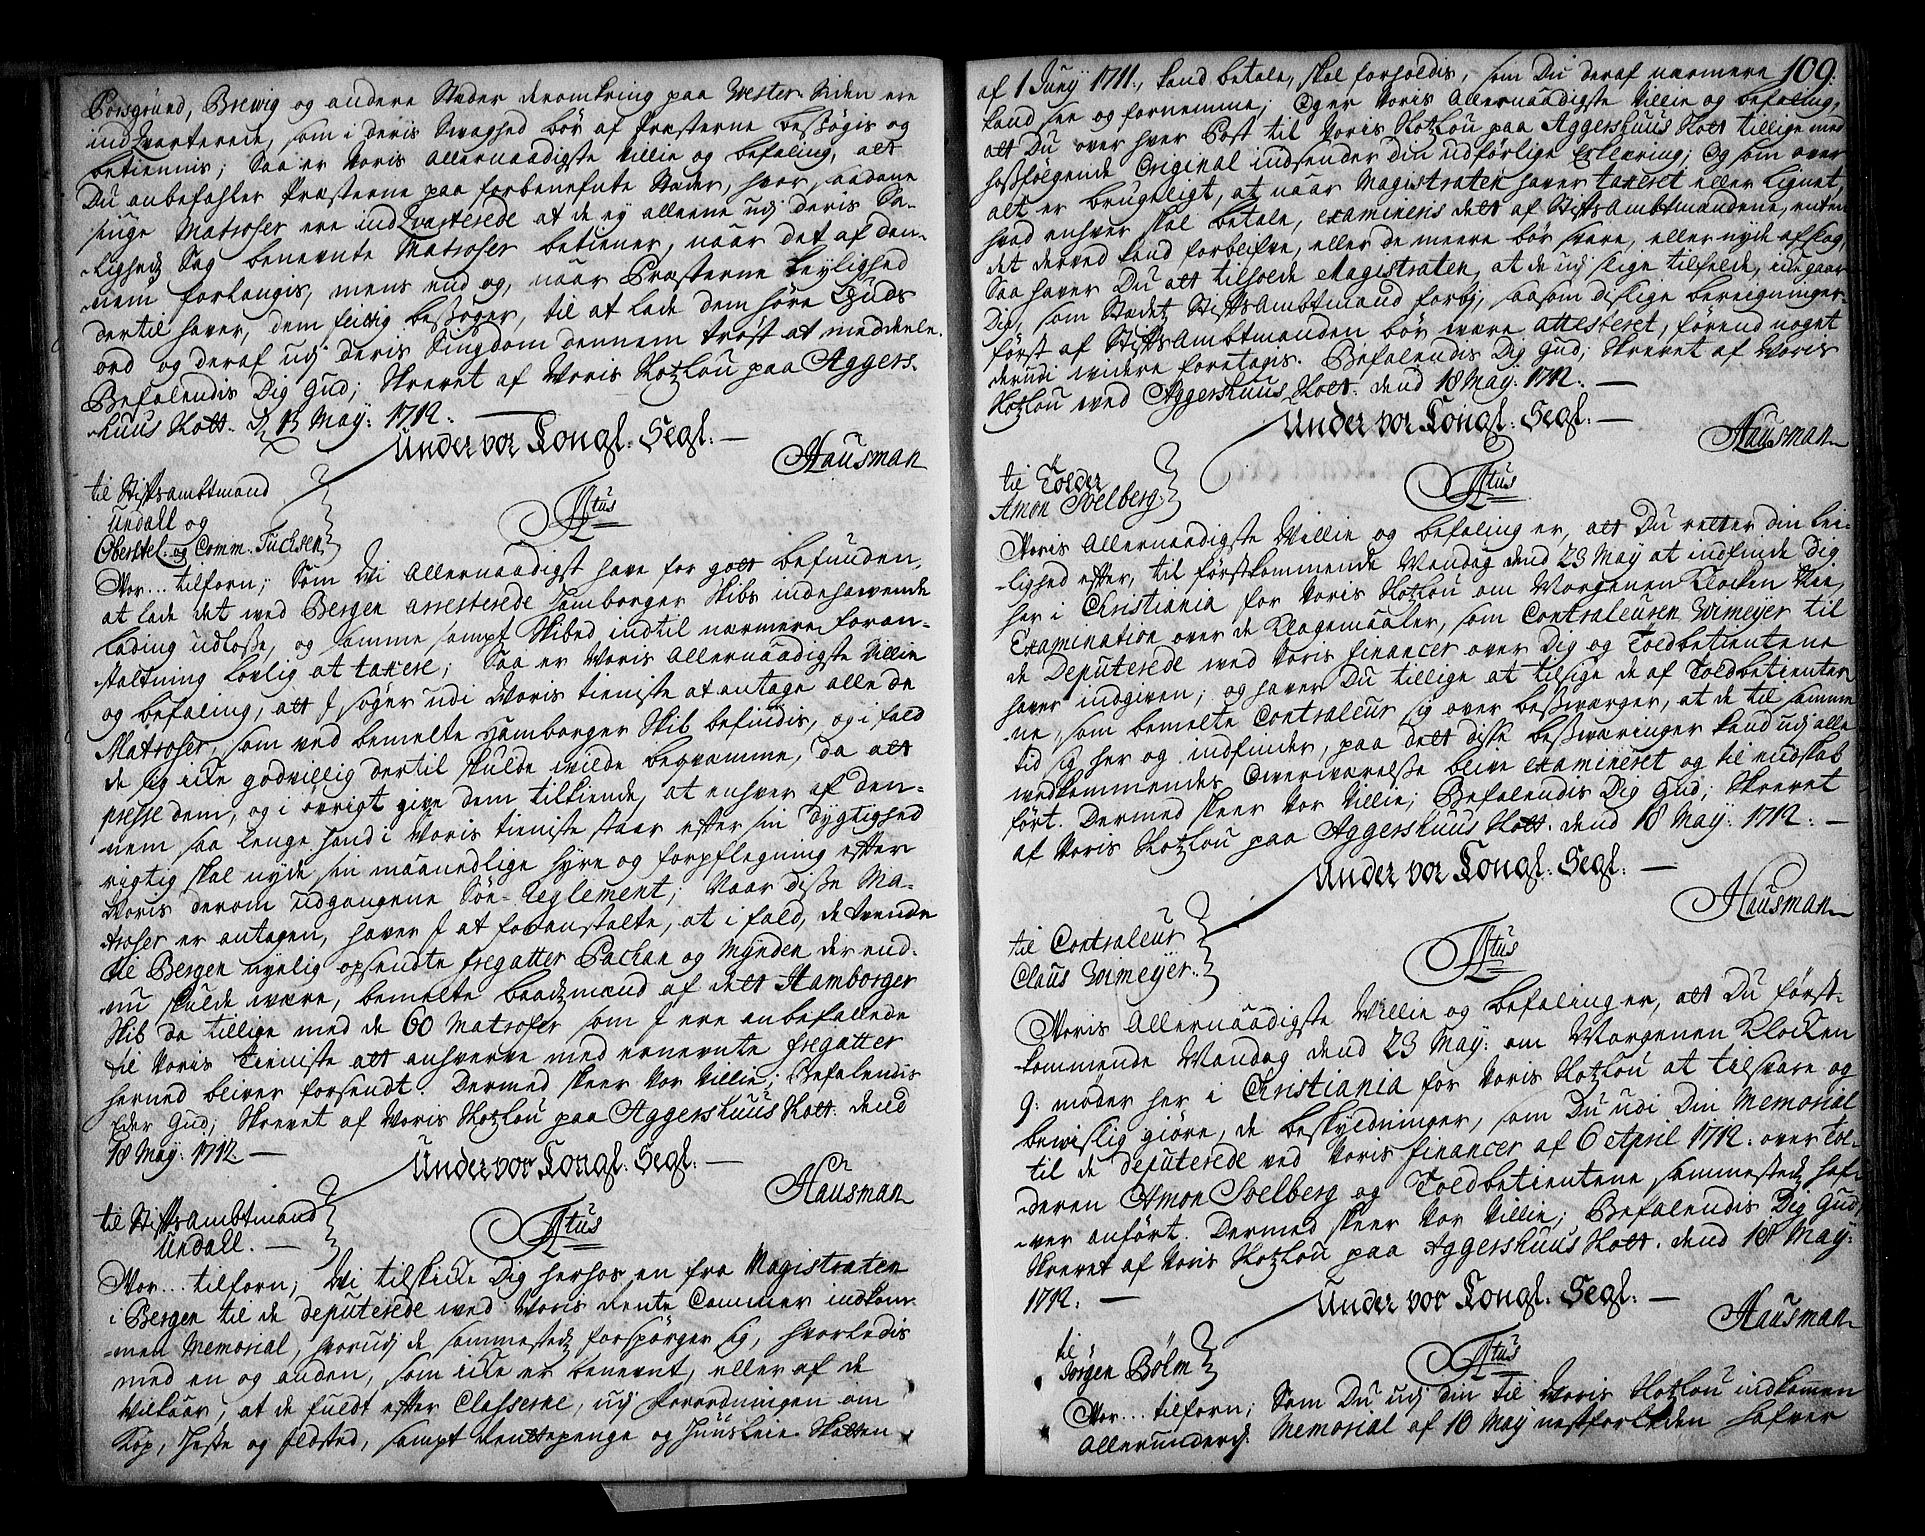 Porsgrund, Brewig og andere Stæder deromkring paa Wester-Siden ere
indqvarterede, som i deris Svaghed bör af Præsterne besøgis og
betiennis; Saa er Voris Allernaadigste Villie og befaling, att
Du anbefahler Præsterne paa forbenefnte Stæder, hvor saadane
siuge Matroser ere indqvarterede at de ej alleene udj deris Sa-
-lighedz Sag benevnte Matroser betiener, naar det af den-
nem forlangis, mens end og, naar Præsterne leylighed
dertil haver, dem flittig besøger, til at lade dem høre Guds
ord og deraf udj deris Siugdom dennem trøst at meddeele.
Befalendis Dig Gud; Skrevet af Voris Slotzlou paa Aggers-
-huus Slott. d. 13 May: 1712.
Under vor Kongl. Segl.
Hausman
til Stiftsambtmand
Undall og
Oberstel. og Comm. Tuchsen
Fr: 4tus
Vor... tilforn; Som Vi Allernaadigst have for gott befunden,
at lade det ved Bergen arresterede Hamborger Skibs indehavende
lading udlosse, og samme sampt Skibed indtil nærmere foran-
staltning lovlig at taxere; Saa er Voris Allernaadigste Villie
og befaling, att I søger udi Voris tieniste at antage alle de
Matroser, som ved bemelte Hamborger Skib befindis, og i fald
de sig icke godvillig dertil skulde wilde beqvemme, da att
presse dem, og i övrigt give dem tilkiende, at enhver af den-
nem saa lenge hand i Voris tieniste staar efter sin dygtighed
rigtig skal nyde sin maanedlige hyre og forpflegning efter
Voris derom udgangene Søe-Reglement; Naar disse Ma-
troser er antagen, haver I at foranstalte, at i fald, de tvende
til Bergen nyelig opsendte fregatter Packan og Mynden der end-
nu skulde were, bemelte baadzmænd af dett Hamborger
Skib da tillige med de 60 Matroser som I ere anbefalede
til Voris Tieniste att anhverve med ernevnte fregatter
herned bliver forsendt. Dermed skeer Vor Villie; Befalendis
Eder Gud; Skrevet af Voris Slotzlou paa Aggershuus Slott. dend
18 May: 1712
Under vor Kongl. Segl.
Hausman
til Stiftsambtmand
Undall.
Fr: 4tus
Vor... tilforn; Vi tilskicke Dig herhos en fra Magistraten
i Bergen til de deputerede wed Voris Rente Cammer indkom-
-men Memorial, hvorudj de sammestedz forspörger sig, hvorledis
med en og anden, som icke er benevnt, eller af de
Vilkaar, at de fuldt efter Classerne, udj Forordningen om
Kop, Heste og Ildsted, sampt Rentepenge og Huusleie-Skatten
109.
af 1 Juny 1711, kand betale, skal forholdis, som Du deraf nærmere
kand see og fornemme; Og er Voris Allernaadigste Villie og befaling,
att Du over hver Post til Voris Slotzlou paa Aggershuus Slott tillige med
hosfølgende Original indsender din udförlige Erklæring; Og som over
alt er brugeligt, at naar Magistraten haver taxeret eller lignet,
hvad enhver skal betale, examineris dett af Stiftsambtmændene, enten
det derved kand forblifve, eller de meere bör svare, eller nyde aflag,
Saa haver Du att tilholde Magistraten, at de udj slige tilfælde, icke gaar
Dig, som Stædet Stiftsambtmand forbj, saasom deslige bereigninger
först af Stiftsambtmanden bör være attesteret, förend noget
derudi widere foretagis. Befalendis Dig Gud; Skrevet af Voris
Slotzlou wed Aggershuus Slott. dend 18 May: 1712.
Under vor Kongl. Segl.
Hausman
til Tolder
Amon Solberg.
Fr: 4tus
Voris Allernaadigste Villie og befaling er, att Du retter din lei-
-lighed efter, til förstkommende Mandag dend 23 May at indfinde Dig
her i Christiania for Voris Slotzlou om Morgenen Klocken Nie,
Examination over de Klagemaaler, som Contraleuren Vormeyer til
de Deputerede wed Voris financer over Dig og Toldbetientene
haver indgiven; og haver Du tillige at tilsige de af Toldbetienter-
ne, som bemelte Contraleur sig over besværger, at de til samme
tid sig her og indfinder, paa dett disse besværinger kand udj alle
wedkommendes Overwærelse blive examineret og til endskab
fört. Dermed skeer Vor Villie; Befalendis Dig Gud; Skrevet
af Voris Slotzlou paa Aggershuus Slott. dend 18 May: 1712.
Under vor Kongl. Segl.
Hausman
til Contraleur
Claus Vormeyer.
Fr: 4tus
Voris Allernaadigste Villie og befaling er, att Du först-
kommende Mandag dend 23 May: om Morgenen Klocken
9: möder her i Christiania for Voris Slotzlou at tilsvare og
bewislig giöre, de beskyldninger, som Du udi Din Memorial
til de deputerede ved Voris financer af 6 April 1712. over Tol-
deren Amon Solberg og Toldbetientene sammestedz haf-
ver anfört. Dermed skeer Vor Villie; Befalendis Dig Gud,
Skrevet af Voris Slotzlou paa Aggershuus Slott. dend 18 May:
1712.
Under vor Kongl. Segl.
Hausman
til
Jörgen Bölm
Fr: 4tus
Vor... tilforn; Som Du udj din til Voris Slotzlou indkommen
Allerunderd. Memorial af 10 May nestforleden hafver